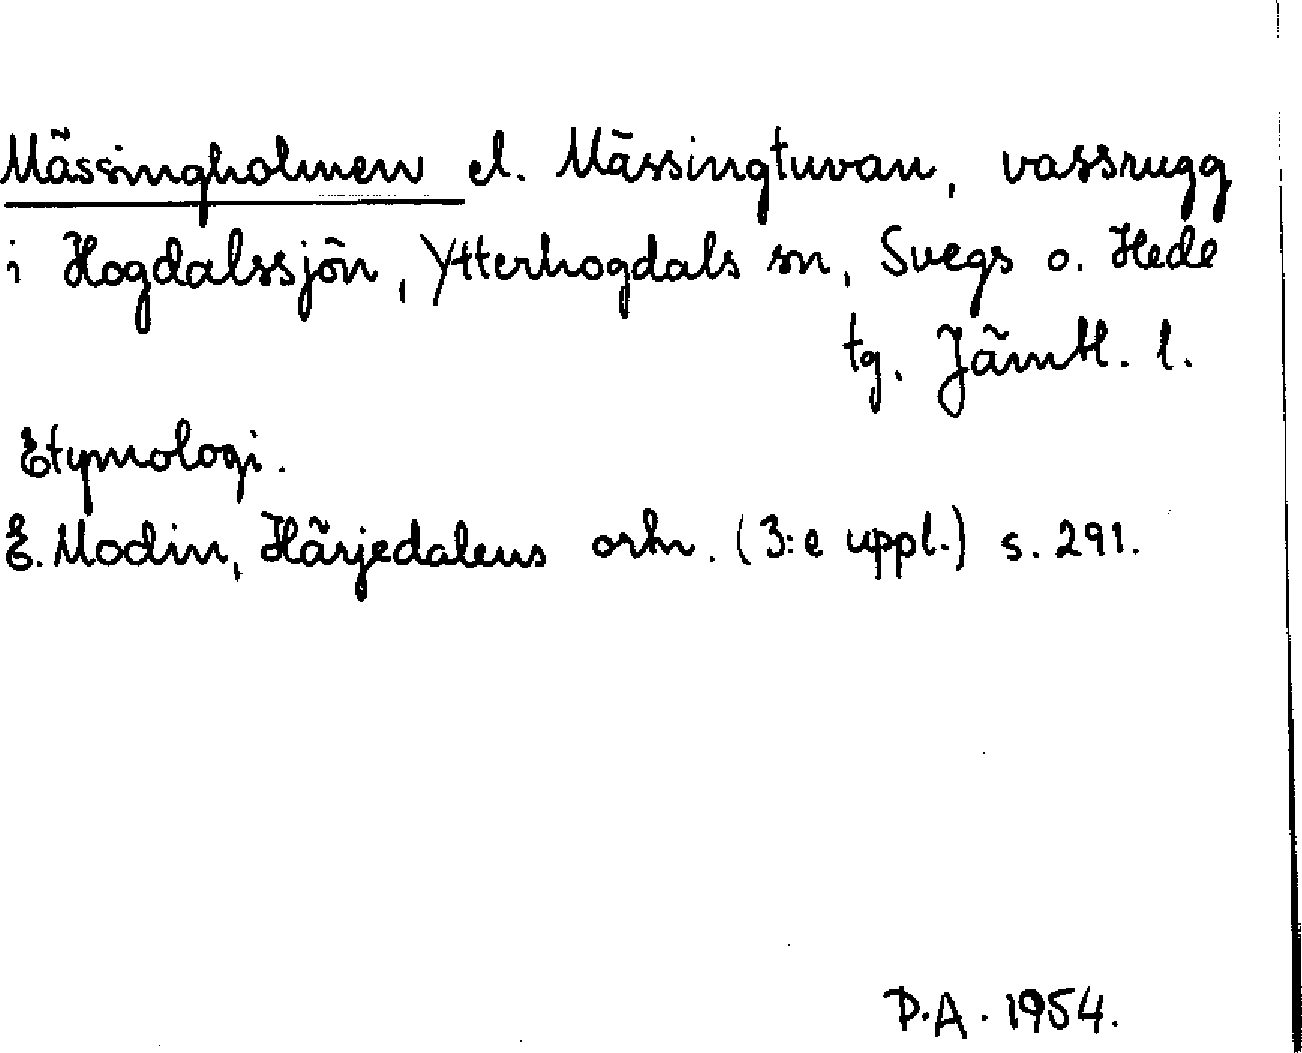 Mässingholmen el. Mässingtuvan, vassrugg
i Hogdalssjön, Ytterhogdals sn, Svegs o. Hede
tg. Jämtl. l.
Etymologi.
E. Modin, Härjedalens ortn. (3:e uppl.) s. 291.
P.A. 1954.